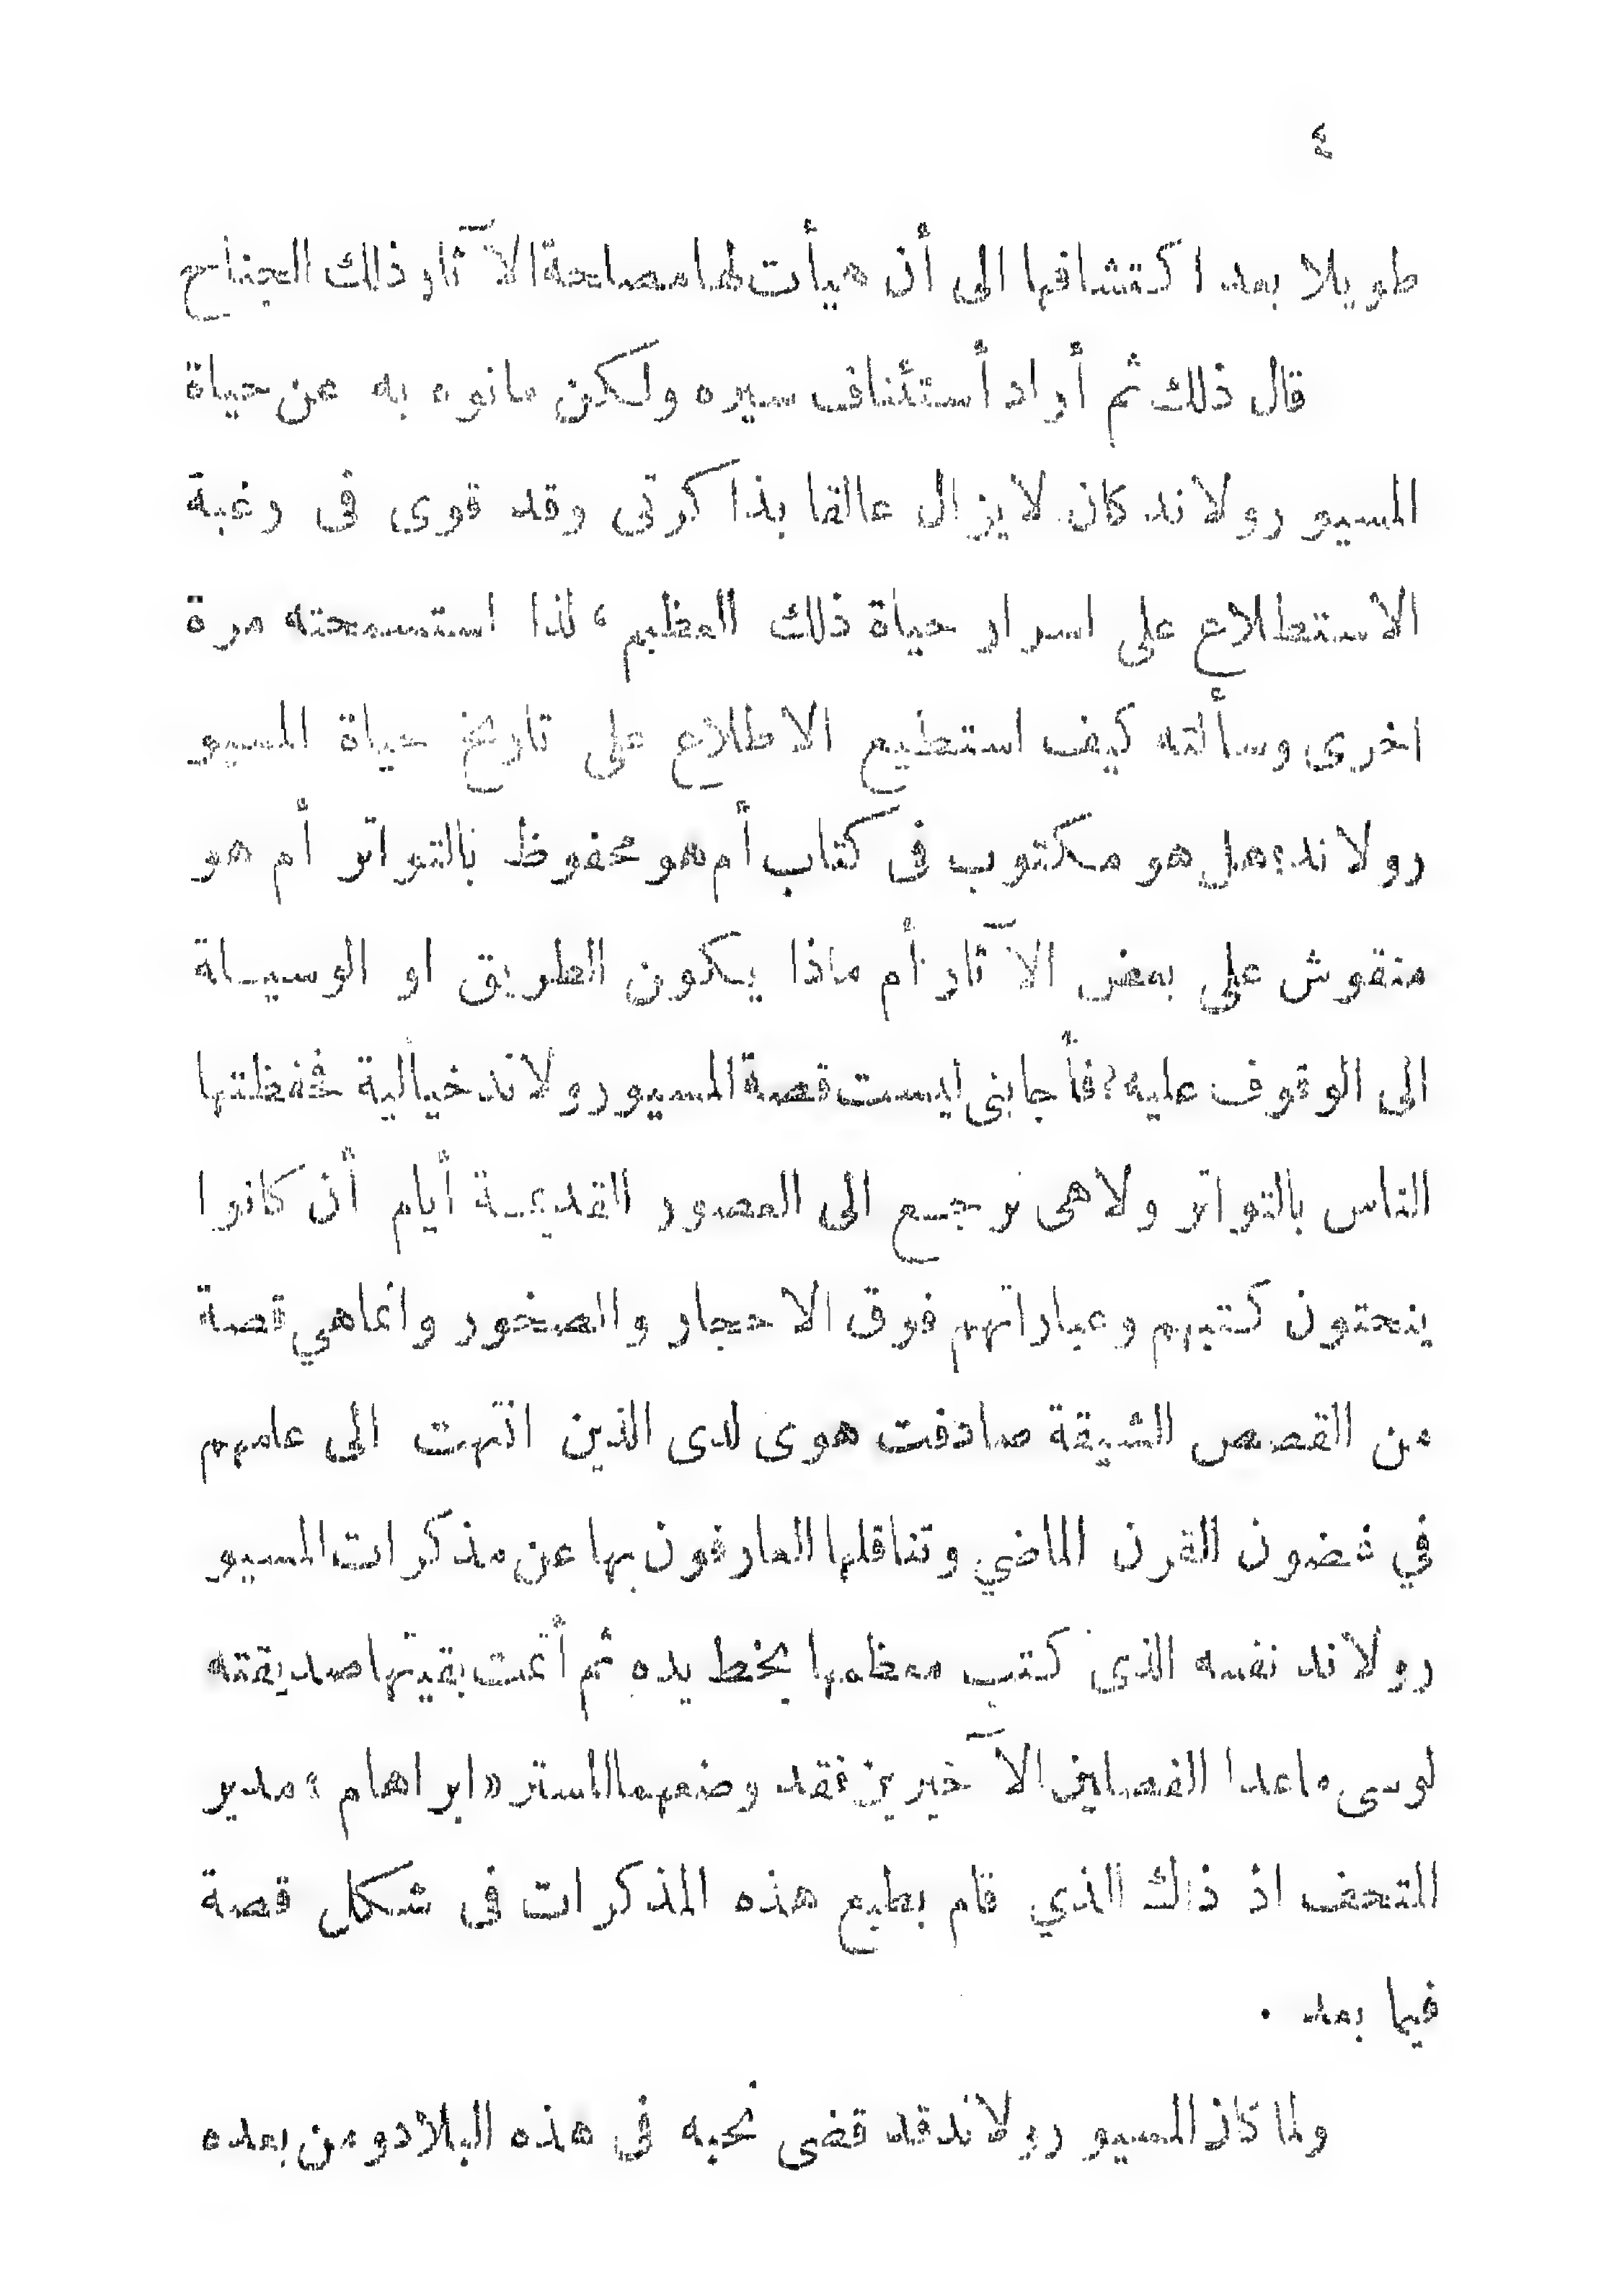 ٤
طويلا بعد اكتشافها الى أن هيأت لها مصلحة الآثار ذلك الجناح
قال ذلك ثم أراد أستئناف سيره ولكن مانوه به عن حياة
المسيو رولاند كان لايزال عالقا بذاكرتى وقد قوى فى رغبة
الاستطلاع على اسرار حياة ذلك العظيم، لذا استسمحته مرة
اخرى وسألته كيف استطيع الاطلاع على تاريخ حياة المسيو
رولاند؛ هل هو مكتوب فى كتاب أم هو محفوظ بالتواتر أم هو
منقوش على بعض الآثار أم ماذا يكون الطريق او الوسيلة
الى الوقوف عليه؟ فأجابنى ليست قصة المسيو رولاند خيالية فحفظتها
الناس بالتواتر ولاهى ترجع الى العصور القديمة أيام أن كانوا
ينحتون كتبهم وعباراتهم فوق الاحجار والصخور وانماهي قصة
من القصص الشيقة صادفت هوى لدى الذين انتهت الى علمهم
في غضون القرن الماضي وتناقلها العارفون بها عن مذكرات المسيو
رولاند نفسه الذى كتب معظمها بخط يده ثم أتمت بقيتها صديقته
لوسى ماعدا الفصلين الآخيرين فقد وضعهما المستر «ابراهام» مدير
المتحف اذ ذاك الذي قام بطبع هذه المذكرات فى شكل قصة
فيما بعد .
ولما كان المسيو رولاند قد قضى نحبه فى هذه البلاد ومن بعده